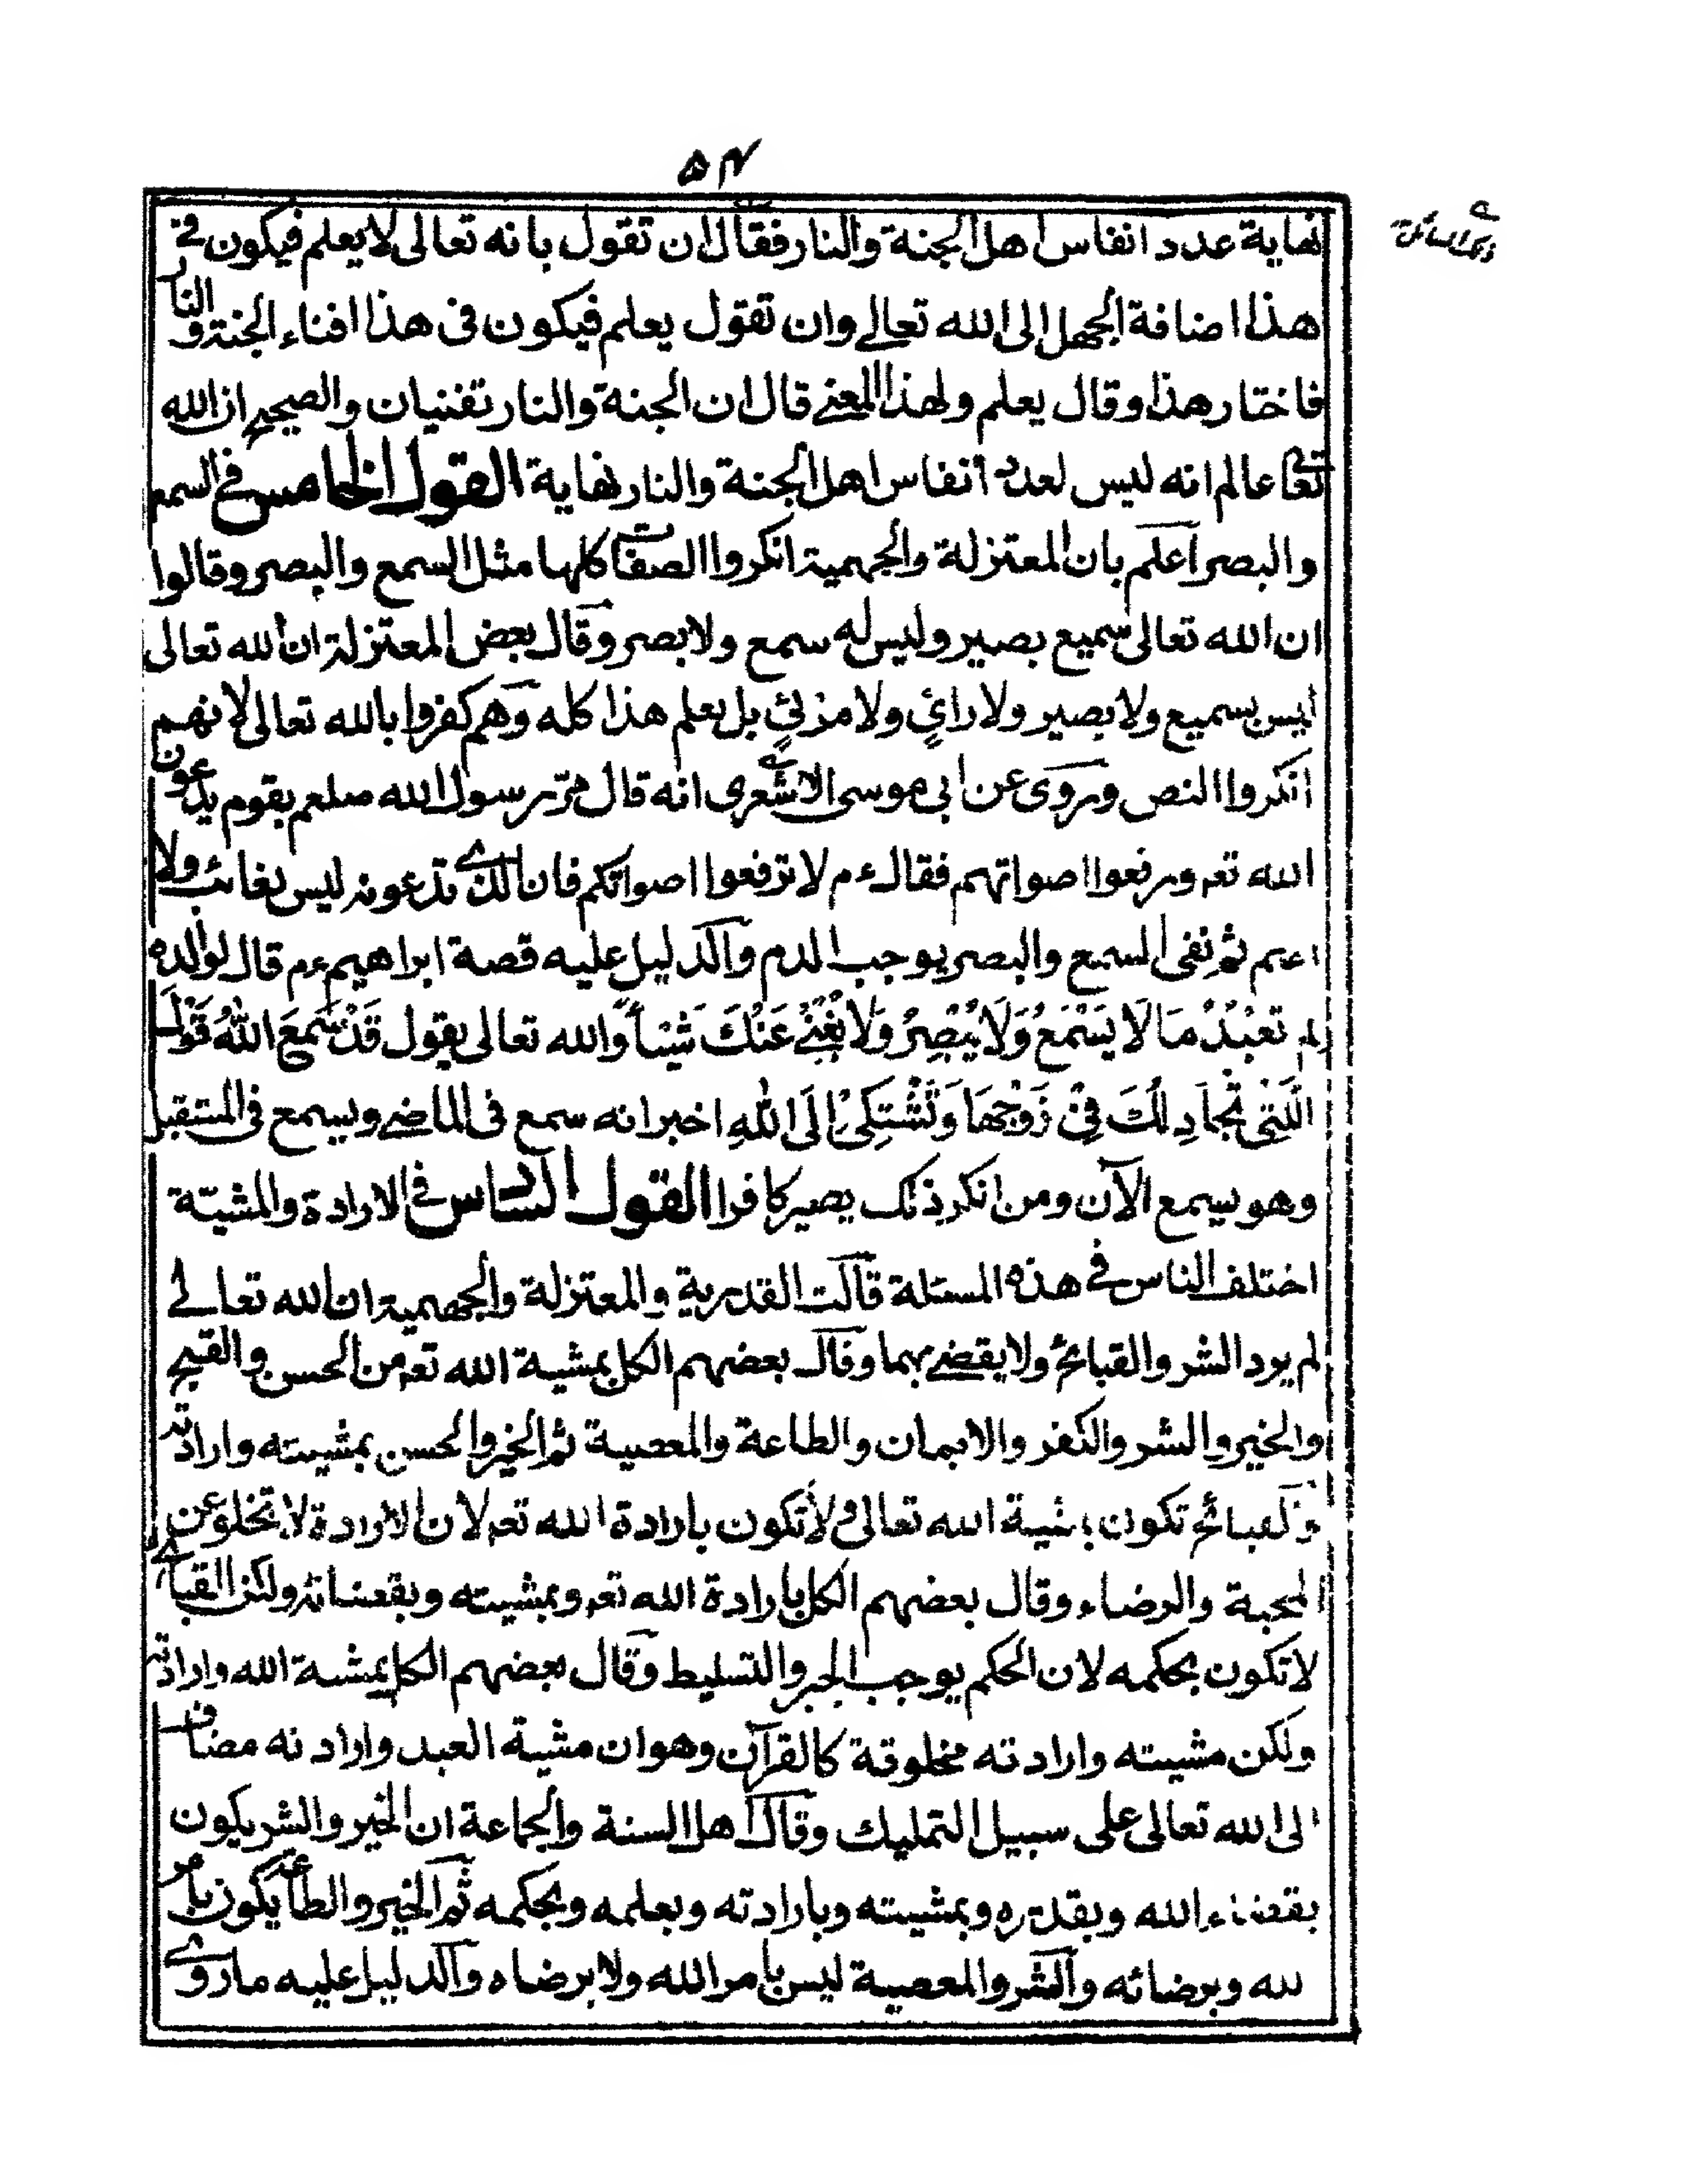 ۵۴
نهاية عدد انفاس اهل الجنة والنار فقال ان تقول بانه تعالى لا يعلم فيكون في
هذا اضافة الجهل الى الله تعالى وان تقول يعلم فيكون فى هذا افناء الجنة والنار
فاختار هذا وقال يعلم ولهذا المعنے قال ان الجنة والنار تفنيان والصحيح ان الله
تعالى عالم انه ليس لعدد انفاس اهل الجنة والنار نهاية القول الخامس في السمع
والبصر اعلم بان المعتزلة والجهمية انكروا الصفات كلها مثل السمع والبصر وقالوا
ان الله تعالى سميع بصير وليس له سمع ولا بصر وقال بعض المعتزلة ان الله تعالى
ليس بسميع ولا بصير ولا رايٍ ولا مرئيٍ بل يعلم هذا كله وهم كفروا بالله تعالى لانهم
انكروا النص وروى عن ابى موسى الاشعرى انه قال مر رسول الله صلعم بقوم يدعون
الله تعـ ورفعوا اصواتهم فقال ءم لا ترفعوا اصواتكم فان الذے تدعونه ليس بغائب ولا
اعم ثم نفى السمع والبصر يوجب الدم والدليل عليه قصة ابراهيم ءم قال لوالده
لِمَ تَعْبُدُ مَا لَا يَسْمَعُ وَلَا يُبْصِرُ وَلَا يُغْنِے عَنْكَ شَيْئاً والله تعالى يقول قَدْ سَمِعَ اللّٰهُ قَوْلَ
الَّتِىْ تُجَادِلُكَ فِىْ زَوْجِهَا وَتَشْتَكِىْ اِلَى اللّٰهِ اخبر انه سمع فى الماضے ويسمع فى المستقبل
وهو يسمع الآن ومن انكر ذلك يصير كافرا القول السادس في الارادة والمشيّة
اختلف الناس في هذه المسئلة قالت القدرية والمعتزلة والجهمية ان الله تعالى
لم يرد الشر والقبائح ولا يقضے بهما وقال بعضهم الكل بمشية الله تعـ من الحسن والقبيح
والخير والشر والكفر والايمان والطاعة والمعصية ثم الخير والحسن بمشيته وارادته
والقبائح تكون بمشية الله تعالى ولا تكون بارادة الله تعـ لان الارادة لا تخلو عن
المحبة والرضاء وقال بعضهم الكل بارادة الله تعـ وبمشيته وبقضائه ولكن القبائح
لا تكون بحكمه لان الحكم يوجب الجبر والتسليط وقال بعضهم الكل بمشية الله وارادته
ولكن مشيته وارادته مخلوقة كالقرآن وهو ان مشية العبد وارادته مضاف
الى الله تعالى على سبيل التمليك وقال اهل السنة والجماعة ان الخير والشر يكون
بقضاء الله وبقدره وبمشيته وبارادته وبعلمه وبحكمه ثم الخير والطاعة يكون بامر
لله وبرضائه والشر والمعصية ليس بامر الله ولا برضاه والدليل عليه ما روے